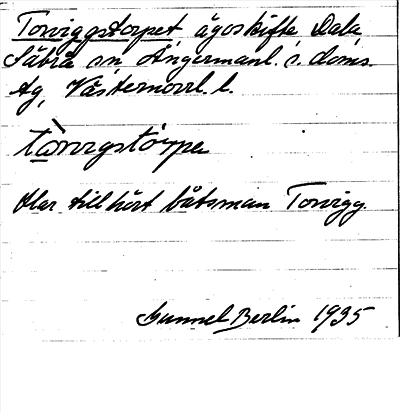 Torviggstorpet ägoskifte Dala
Säbrå sn Ångermanl. s. doms.
Ag, Västernorrl. l.
Har tillhört båtsman Torvigg.
Gunnel Berlin 1935